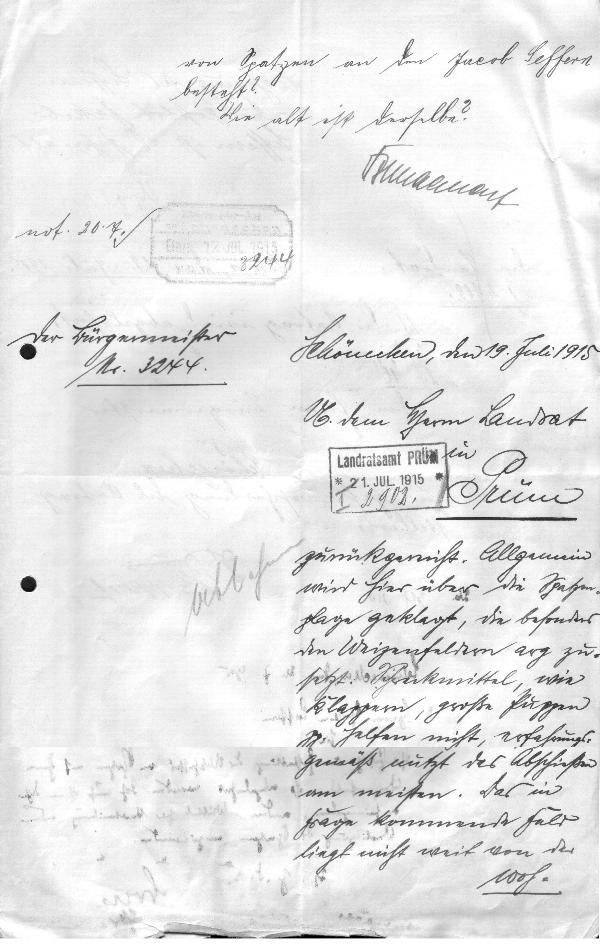 von Spatzen an den Jacob Leffern
besteht?
Wie alt ist derselbe?
not. 20.7.
12 JUL 1915
3244
Der Bürgermeister
Nr. 3244.
Schönecken, den 19. Juli 1915
U. dem Herrn Landrat
in
Landratsamt PRÜM
* 21. JUL. 1915 *
I 2902.
Prüm
zurückgereicht. Allgemein
wird hier über die Spatzen-
plage geklagt, die besonders
den Weizenfeldern arg zu-
setzt. Schreckmittel, wie
Klappern, große Puppen
pp. helfen nicht, erfahrungs-
gemäß nützt das Abschießen
am meisten. Das in
Frage kommende Feld
liegt nicht weit von der
Woh-